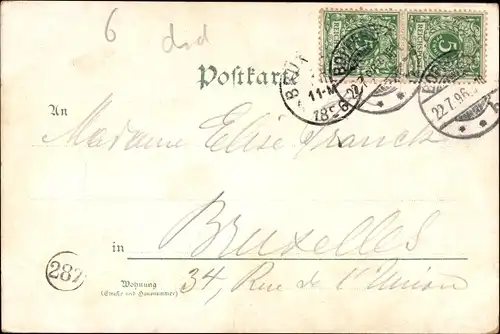 6 dsd
5 5
Postkarte
BRUX
11-M
1896
22.7.
22.7.96.
An
Madame Elise Franck
in Bruxelles
287
Wohnung
(Straße und Hausnummer)
34, Rue de l'Union